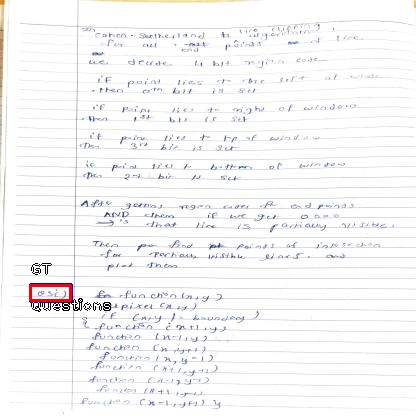 Cohen-Sutherland is line clipping
algorithm.
for all end points of line
we decide 4 bit region code
if point lies to the left of
then 0th bit is set
if point lies to right of window
then 1st bit is set
if point lies to top of window
then 3rd bit is set
if point lies to bottom of window
then 2nd bit is set
After getting region codes of end points
AND them if we get 0000
that line is partially visible.
Then find points of intersection
for partially visible lines and
plot them
GT
Q5i) function(x,y)
Questions pixel(x,y)
if (x,y != boundary)
{ function (x+1,y)
function (x-1,y)
function (x,y+1)
function (x,y-1)
function (x+1,y+1)
function
function
function (x-1,y+1) }